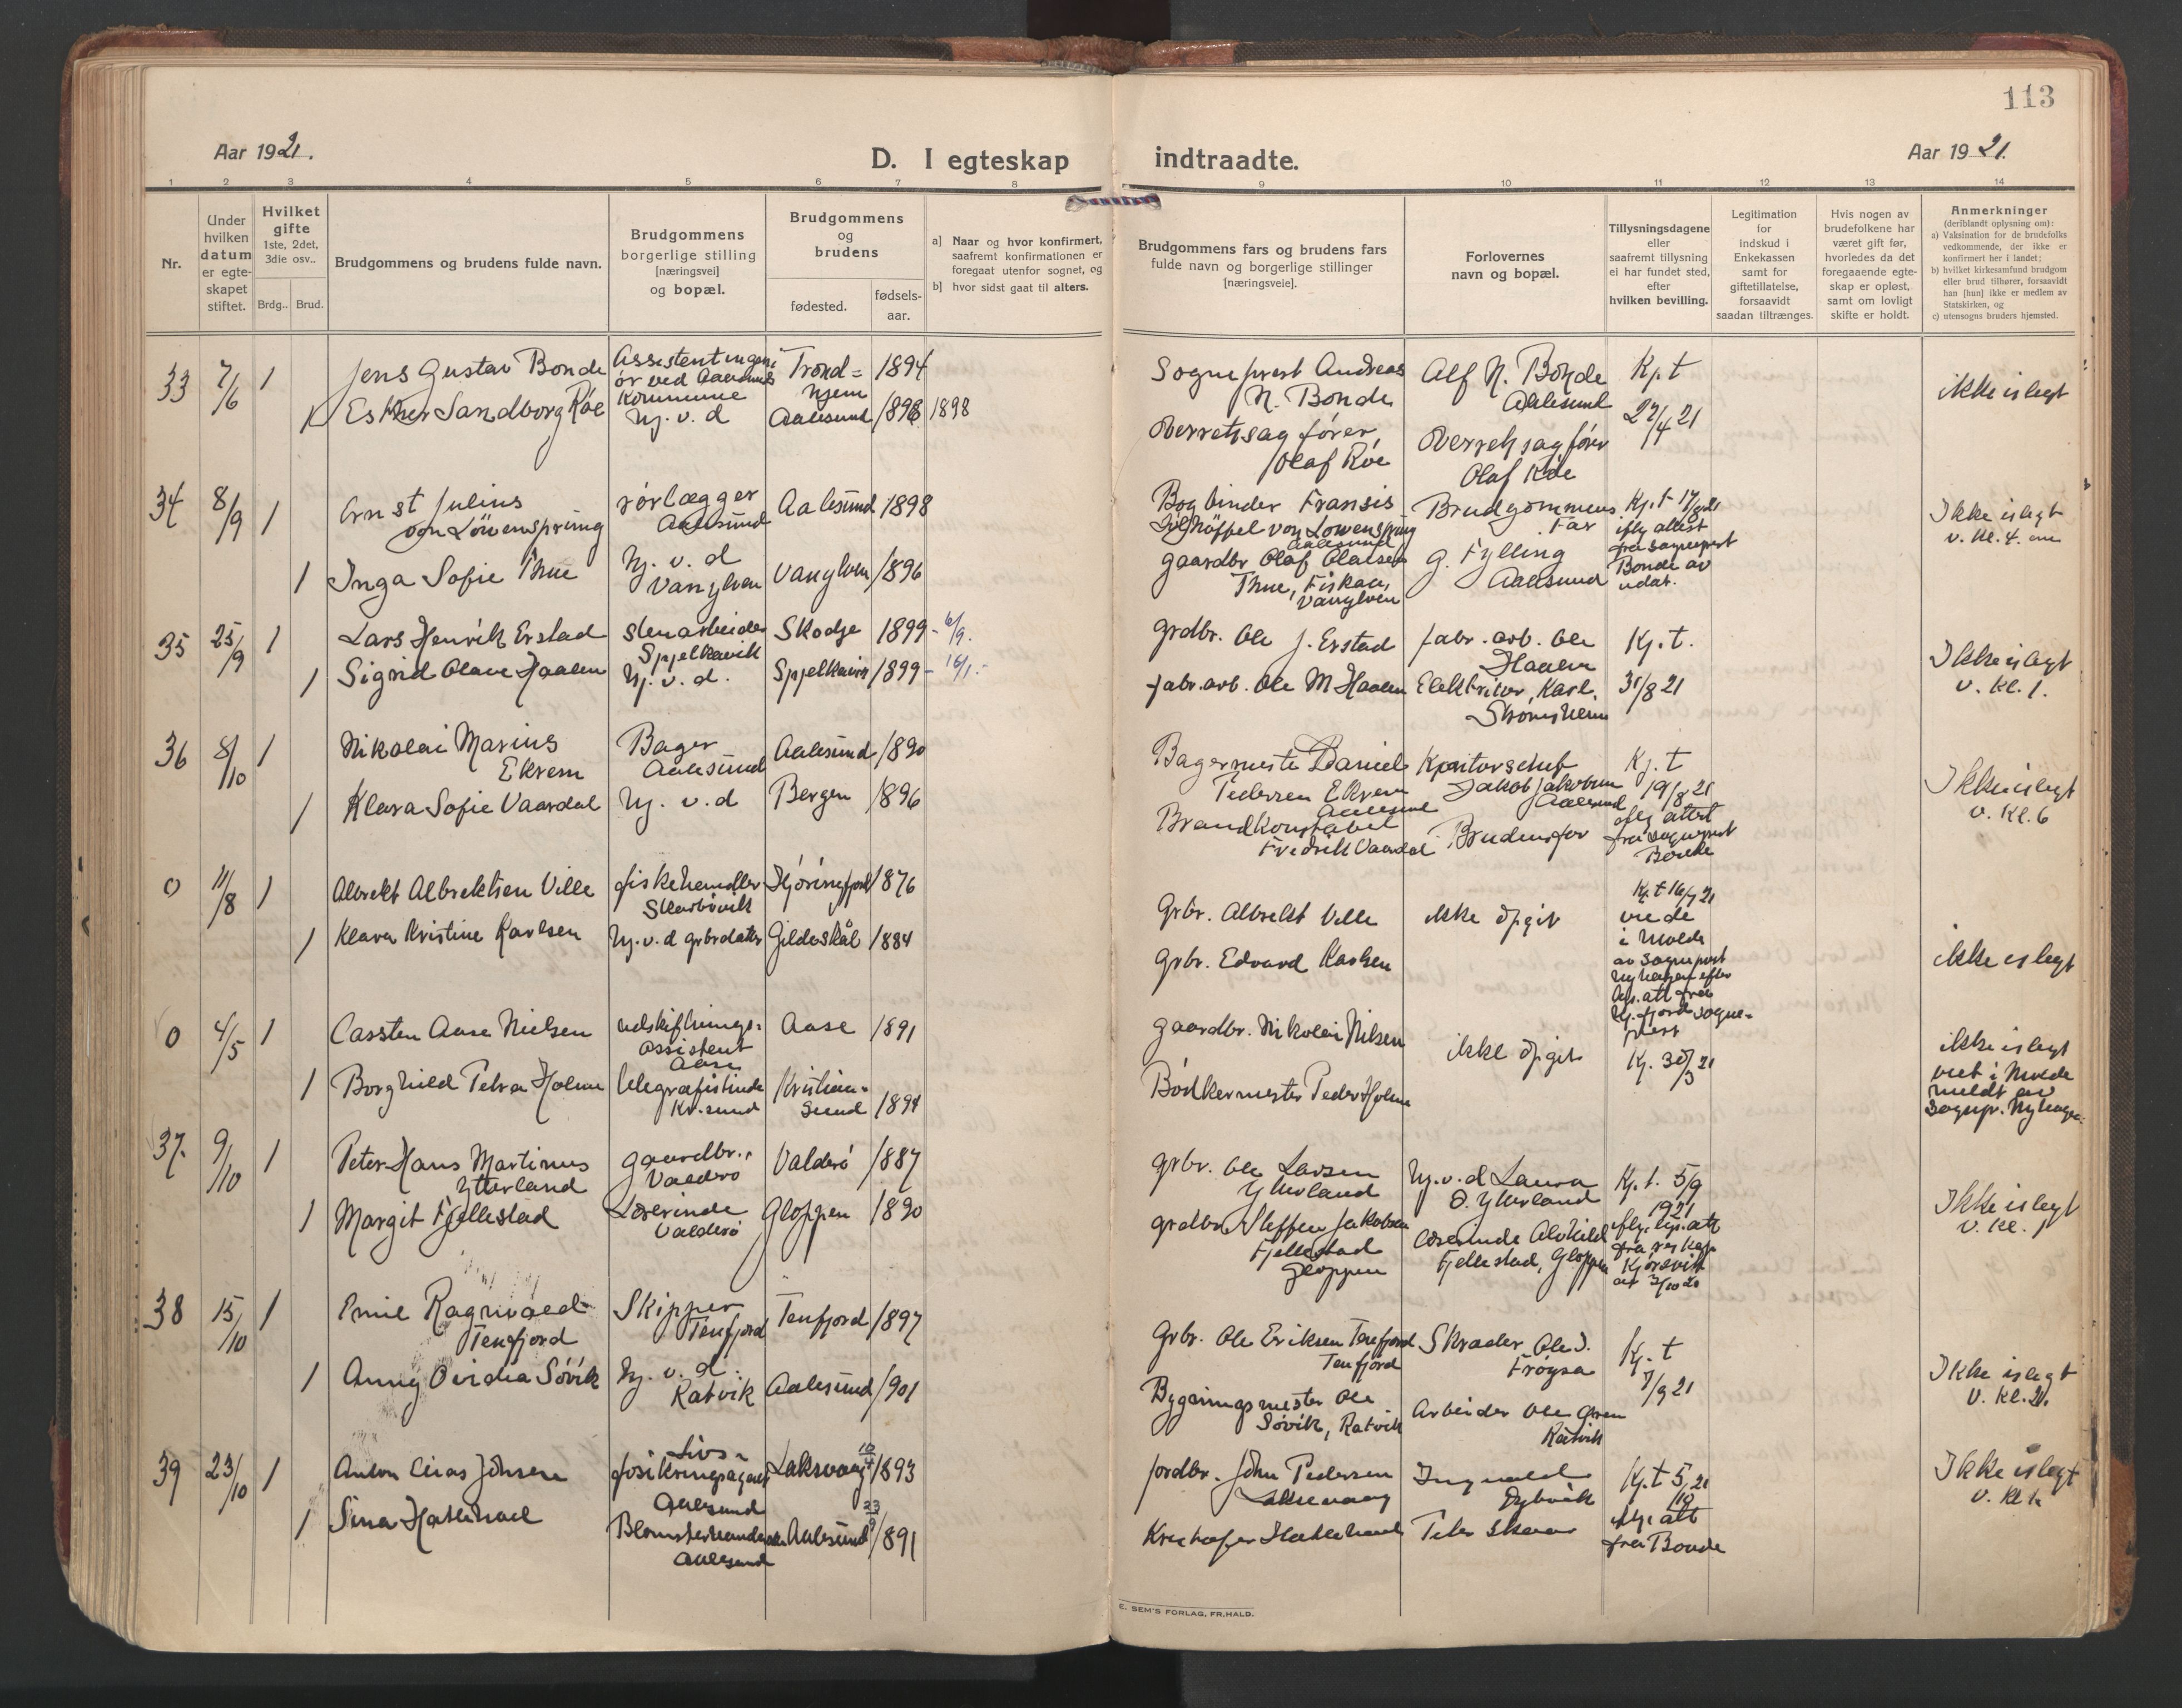 113
Aar 1921.
D. I egteskap indtraadte.
Aar 1921.
1 2 3 4 5 6 7 8 9 10 11 12 13 14
Nr.
Under hvilken datum er egte-skapet stiftet.
Hvilket gifte 1ste, 2det, 3die osv..
Brdg.. Brud.
Brudgommens og brudens fulde navn.
Brudgommens borgerlige stilling [næringsvei] og bopæl.
Brudgommens og brudens
fødested.
fødsels-aar.
a] Naar og hvor konfirmert, saafremt konfirmationen er foregaat utenfor sognet, og
b] hvor sidst gaat til alters.
Brudgommens fars og brudens fars fulde navn og borgerlige stillinger [næringsveie].
Forlovernes navn og bopæl.
Tillysningsdagene eller saafremt tillysning ei har fundet sted, efter hvilken bevilling.
Legitimation for indskud i Enkekassen samt for giftetillatelse, forsaavidt saadan tiltrænges.
Hvis nogen av brudefolkene har været gift før, hvorledes da det foregaaende egte-skap er opløst, samt om lovligt skifte er holdt.
Anmerkninger (deriblandt oplysning om):
a) Vaksination for de brudefolks vedkommende, der ikke er konfirmert her i landet;
b) hvilket kirkesamfund brudgom eller brud tilhører, forsaavidt han [hun] ikke er medlem av Statskirken, og
c) utensogns bruders hjemsted.
33 7/6 1 Jens Gustav Bonde Assistentingeni ør ved Aalesunds Kommune Trond=hjem 1894 Sogneprest Andreas N. Bonde Alf N. Bonde Aalesund Kj. t 27/4 21 ikke islegt
1 Esther Sandborg Röe Hj. v. d Aalesund 1898 1898 Overretssagfører Olaf Röe Overretsagfører Olaf Röe
34 8/9 1 Ernst Julius von Löwensprung rörlægger Aalesund Aalesund 1898 Bogbinder Fransis von Lowensprung Aalesund Brudgommens Far Kj. t 17/8 21 iflg attest fra sogneprest Bonde av udat. Ikke islegt v. Kl. 4.
1 Inga Sofie Thue Hj. v. d Vanylven Vanylven 1896 gaardbr Olaf Olalsen Thue, Fiskaa, Vanylven G. Fylling Aalesund
35 25/9 1 Lars Henrik Erstad Stenarbeider Spjelkavik Skodje 1899 - 6/9. grdbr. Ole J. Erstad fabr. arb. Ole Haalen Kj. t. 31/8 21 Ikke islegt v. Kl. 1.
1 Sigrid Olave Haalen Hj. v. d. Spjelkavik 1899 - 16/1.- fabr. arb. Ole M Haalen Elektriker, Karl. Strømsheim
36 8/10 1 Nikolai Marius Ekrem Bager Aalesund Aalesund 1890 Bagermester Daniel Pedersen Ekrem Aalesund Kontorschef Jakob Jakobsen Aalesund Kj. t 19/8 21 iflg attest fra sogneprest Ikke islegt v. Kl. 6
1 Klara Sofie Vaardal Hj. v. d Bergen 1896 Brandkonstabel Fredrik Vaardal Brudens far
0 11/8 1 Albrekt Albrektsen Ville fiskehandler Skarbøvik Hjørinefjord 1876 Grbr. Albrekt Ville ikke opgit Kj. t 16/7 21 viede i Molde av sogneprest Nyhagen efter
1 Klara Kristine Karlsen Hj. v. d grbrdatter Gildeskål 1884 Grbr. Edvard Karlsen ikke islegt
0 4/5 1 Cassten Aase Nielsen udskiftnings-assistent Aase Aase 1891 gaardbr. Nikolai Nilsen ikke opgit Kj. 30/3 21 ikke islegt viet i Molde meldt av sognepr. Nyhagen.
1 Borghild Petra Holm telegrafistinde Kr.sund Kristian-sund 1894 Bödkermester Peder Holm
37. 9/10 1 Peter Hans Martinus Ytterland gaardbr., Valderö Valderö 1887 grbr. Ole Larsen Ytterland Hj. v. d Laura O. Ytterland Kj. t. 5/9 1921 Ikke islegt v. Kl. 1
1 Margit Fjellestad Lærerinde Valderö Gloppen 1890 grdbr. Steffen Jakobsen Fjellestad Gloppen Lærerinde Alvhild Fjellestad, Gloppen
38 15/10 1 Emil Ragnvald Tenfjord Skipper Tenfjord Tenfjord 1897 Grbr. Ole Eriksen Tenfjord Tenfjord Skræder Ole J. Frøysa Kj. t 7/9 21 Ikke islegt v. Kl. 2 1/2.
1 Anny Ovidia Søvik Hj. v. d. Ratvik Aalesund 1901 Bygningsmester Ole Søvik, Ratvik Arbeider Ole Ratvik
39 23/10 1 Anton Johnsen Livs-forsikringsagent Aalesund Laksvaag 10/4 1893 Jordbr. John Pedersen Laksevaag Ingvald Dybvik Kj. t 5/10 21 iflg. att fra Bonde Ikke islegt v. Kl 1.
1 Sina Hatlehael Blomsterhandler Aalesund Aalesund 23/9 1891 Kristofer Hatlehael Peter Skaar
E. SEM'S FORLAG, FR.HALD.